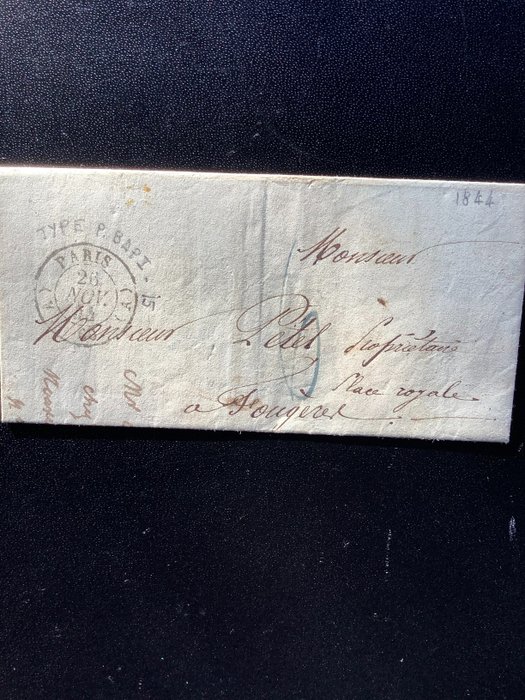 1844
TYPE P. BAPT - 15
PARIS
26
NOV.
44
Monsieur
Monsieur Pitel Propriétaire
Place royale
a Fougères